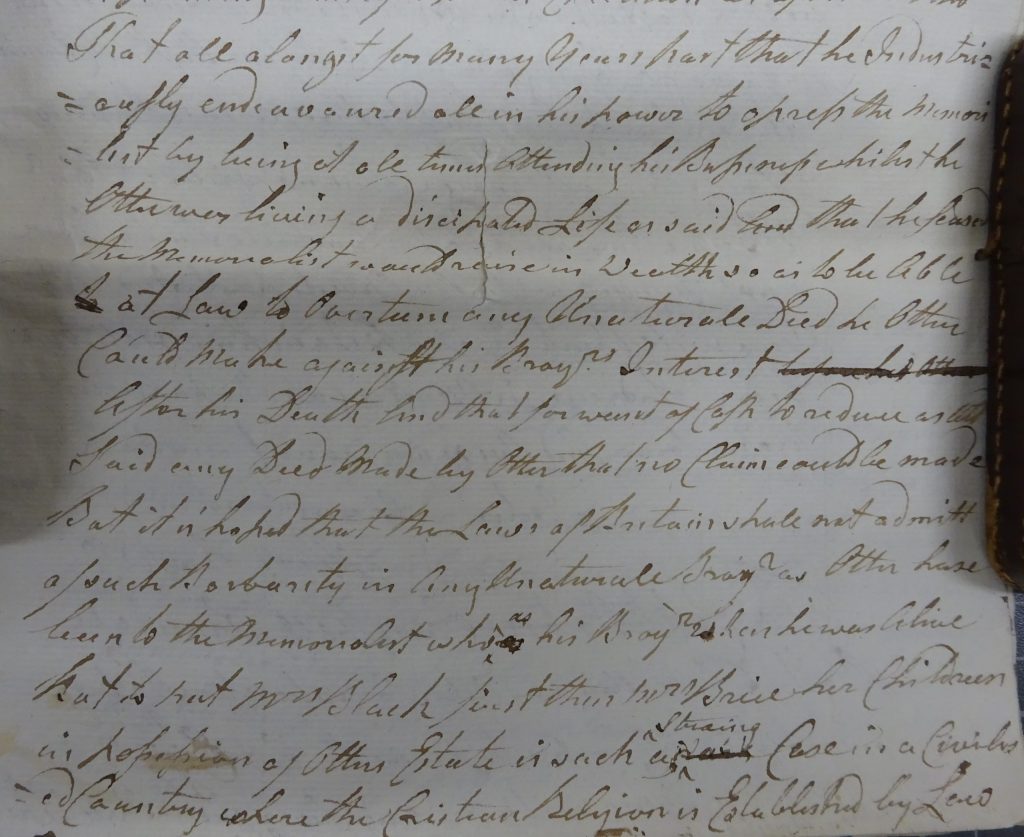 That all alongst for many Years past that he Industri=
=ously endeavoured all in his power to opress the Memori
=list by being at all times Attending his Business whilest he
Otter was living a discipated Life as said And that he feared
the Memorialist would raise in Wealth so as to be Able
at Law to Overturn any Unaturale Died he Otter
Could Make against his Broyrs Interest
After his Death And that for want of Cash to reduce as
Said any Died Made by Otter that no Claim could be made
But it is hoped that the Laws of Britain shale not admitt
of such Barbarity in Any Unaturale Broyr as Otter have
been to the Memorialist who as his Broyr when he was Alive
But to put Mrs Black first then Mrs Brice her Children
in possession of Otters Estate is such a Straing Case in a Civilis
=ed Country where the Cristian Religion is Established by Law